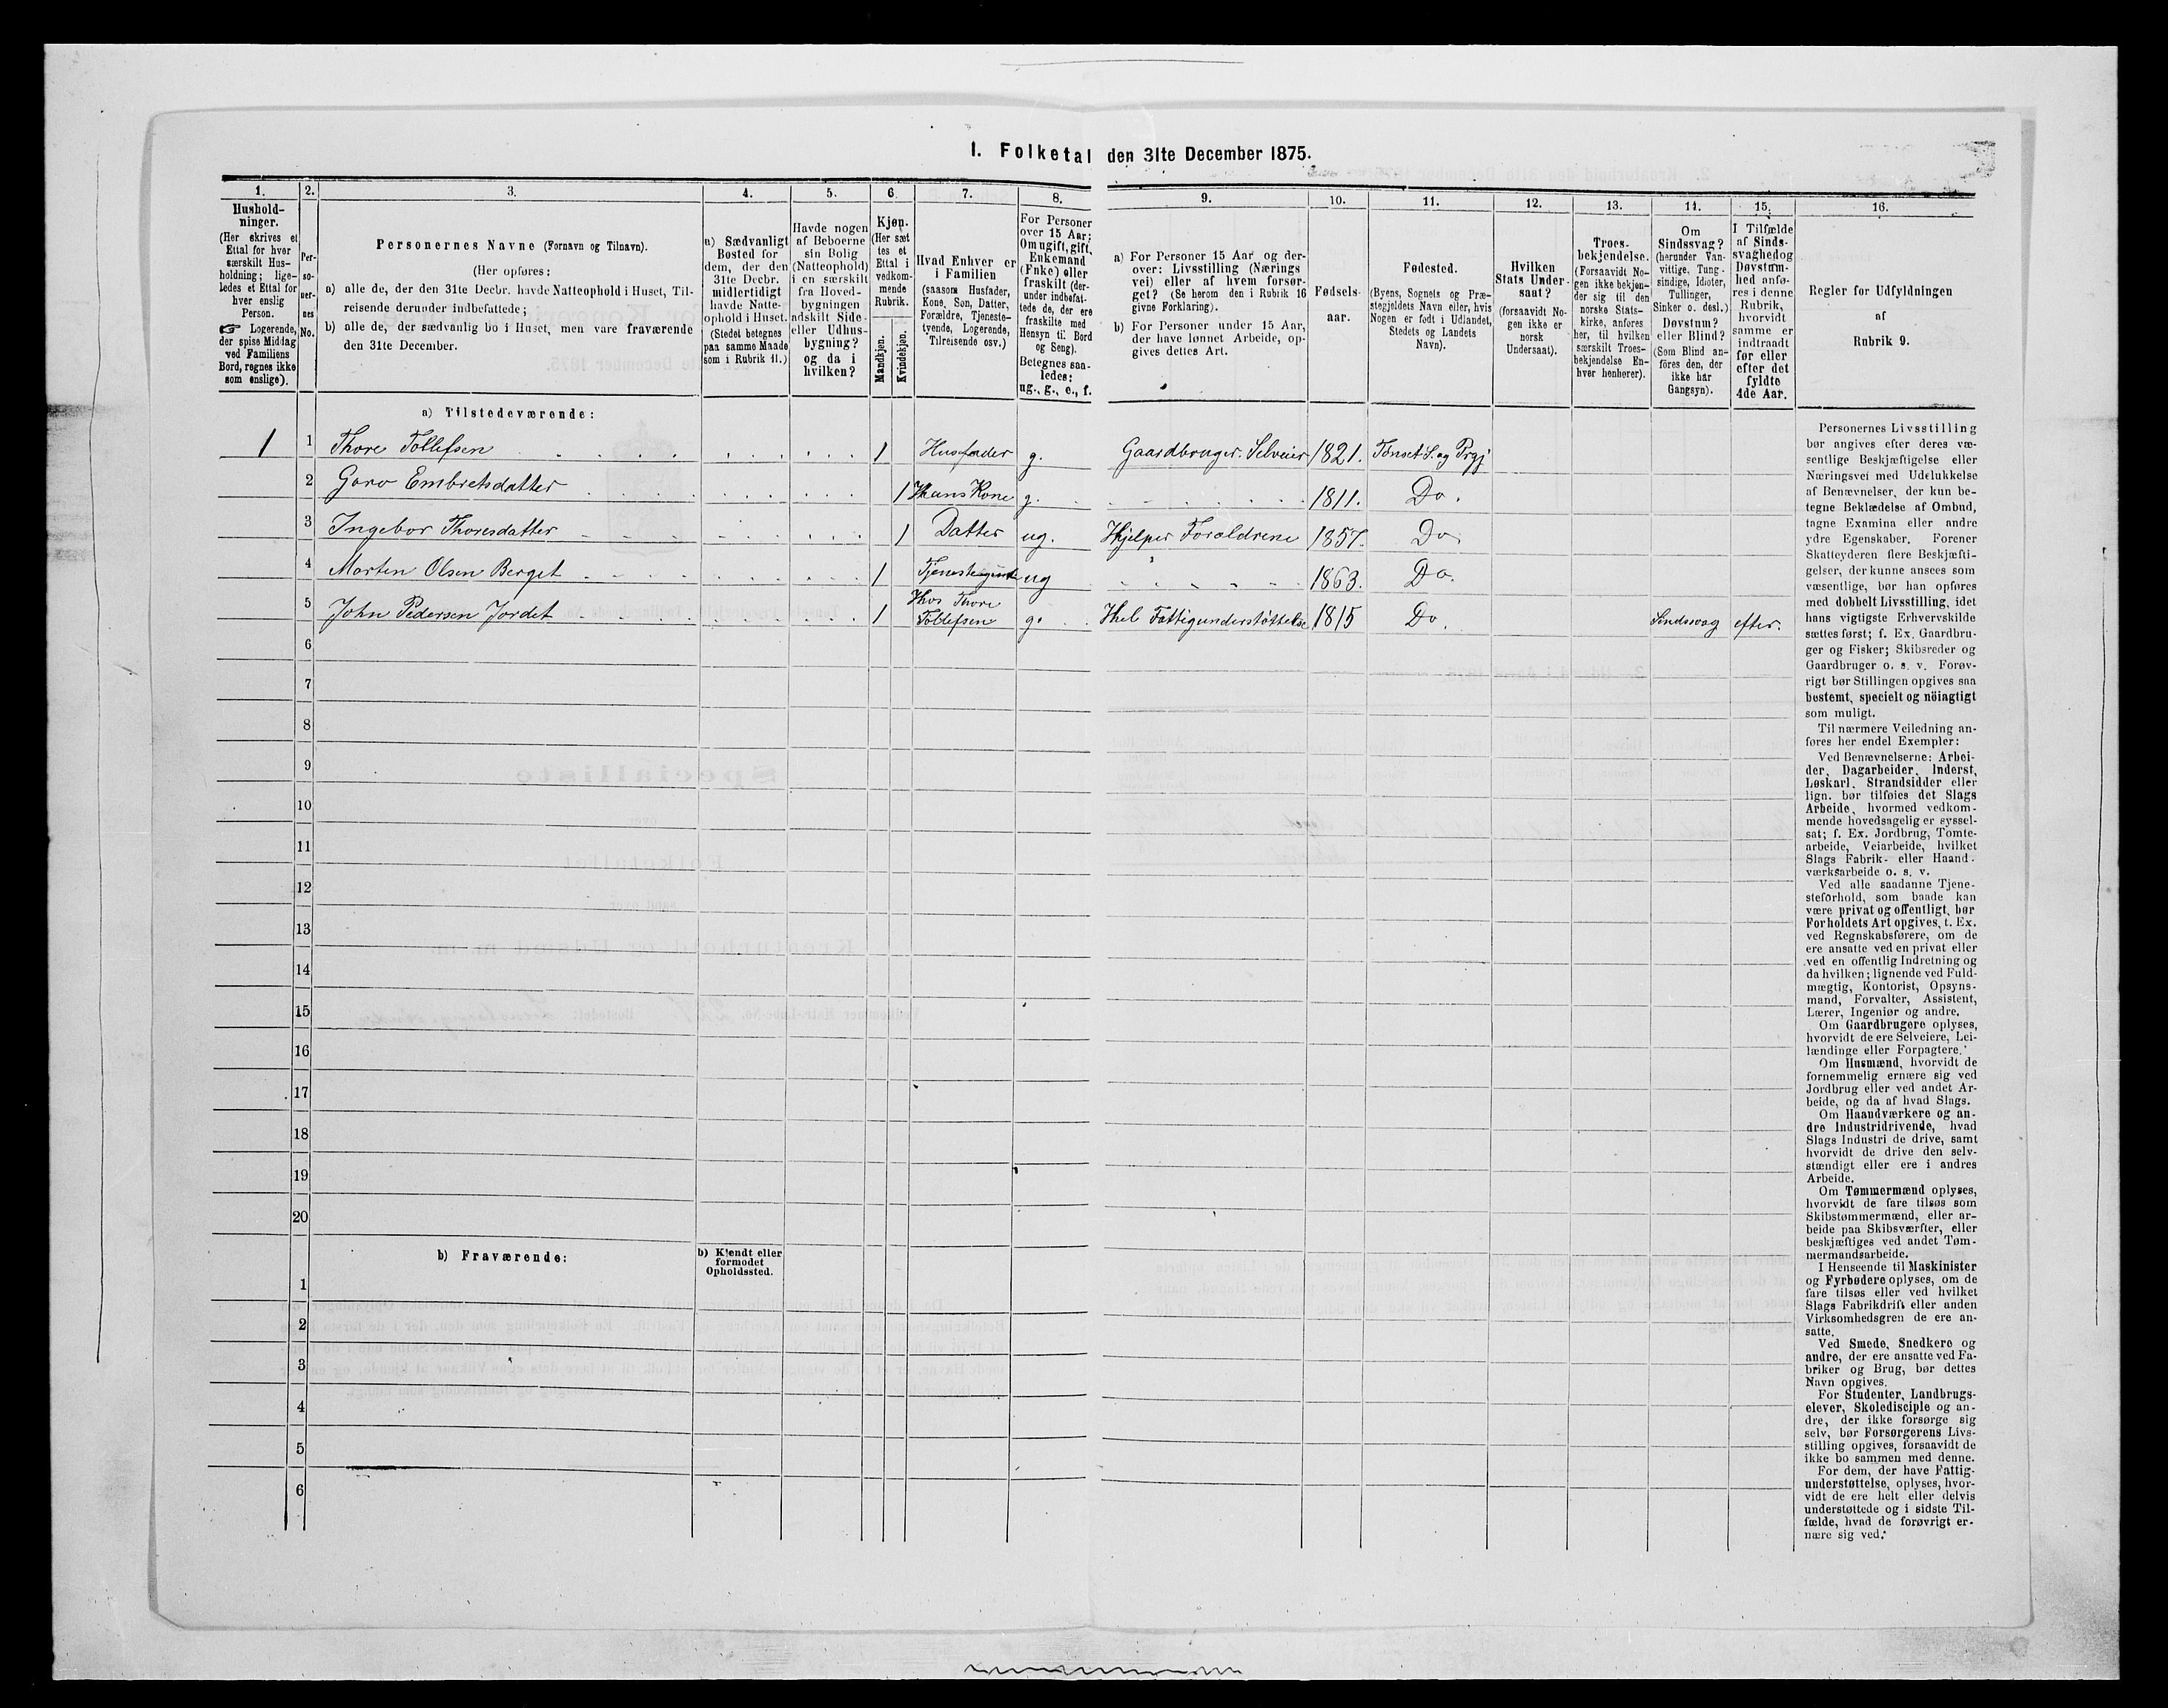 I. Folketal den 31te December 1875.
1. 2. 3. 4. 5. 6. 7. 8. 9. 10. 11. 12. 13. 14. 15. 16.
Hushold-
ninger.
(Her skrives et
Ettal for hver
særskilt Hus-
holdning; lige-
ledes et Ettal for
hver enslig
Person.
☞ Logerende,
der spise Middag
ved Familiens
Bord, regnes ikke
som enslige).
Per-
so-
ner-
nes
No.
Personernes Navne (Fornavn og Tilnavn).
(Her opføres:
a) alle de, der den 31te Decbr. havde Natteophold i Huset, Til-
reisende derunder indbefattede;
b) alle de, der sædvanlig bo i Huset, men vare fraværende
den 31te December.
a) Sædvanligt
Bosted for
dem, der den
31te Decbr.
midlertidigt
havde Natte-
ophold i Huset.
(Stedet betegnes
paa samme Maade
som i Rubrik 11.)
Havde nogen
af Beboerne
sin Bolig
(Natteophold)
i en særskilt
fra Hoved-
bygningen
adskilt Side-
eller Udhus-
bygning?
og da i
hvilken?
Kjøn.
(Her sæt
tes et
Ettal i
vedkom-
mende
Rubrik.
Mandkjøn.
Kvindekjøn.
Hvad Enhver er
i Familien
(saasom Husfader,
Kone, Søn, Datter,
Forældre, Tjeneste-
tyende, Logerende,
Tilreisende osv.)
For Personer
over 15 Aar:
Om ugift, gift,
Enkemand
(Enke) eller
fraskilt (der-
under indbefat-
tede de, der ere
fraskilte med
Hensyn til Bord
og Seng).
Betegnes saa-
ledes:
ug., g., e., f.
a) For Personer 15 Aar og der-
over: Livsstilling (Nærings
vei) eller af hvem forsør-
get? (Se herom den i Rubrik 16
givne Forklaring).
b) For Personer under 15 Aar,
der have lønnet Arbeide, op-
gives dettes Art.
Fødsels-
aar.
Fødested.
(Byens, Sognets og Præ-
stegjeldets Navn eller, hvis
Nogen er født i Udlandet,
Stedets og Landets
Navn).
Hvilken
Stats Under-
saat?
(forsaavidt No-
gen ikke er
norsk
Undersaat).
Troes-
bekjendelse.
(Forsaavidt No-
gen ikke bekjen-
der sig til den
norske Stats-
kirke, anføres
her, til hvilken
særskilt Troes-
bekjendelse En-
hver henhører).
Om
Sindssvag?
(herunder Van-
vittige, Tung-
sindige, Idioter,
Tullinger,
Sinker o. desl.)
Døvstum?
eller Blind?
(Som Blind an-
føres den, der
ikke har
Gangsyn).
I Tilfælde
af Sinds-
svaghed og
Døvstum-
hed anfø-
res i denne
Rubrik,
hvorvidt
samme er
indtraadt
før eller
efter det
fyldte
4de Aar.
Regler for Udfyldningen
af
Rubrik 9.
a) Tilstedeværende:
1 1 Thore Tollefsen 1 Husfader g. Gaardbruger. Selveier 1821. Tønset S. og Prgj
2 Goro Embretsdatter 1 Hans Kone g. 1811. Do.
3 Ingebor Thoresdatter 1 Datter ug. Hjelper Forældrene 1857. Do
4 Morten Olsen Berget 1 ug 1863. Do.
5 John Pedersen Jordet 1 Hos Thore Tollefsen g. Hel Fattigunderstøttelse 1815 Do. Sindssvag efter.
6
7
8
9
10
11
12
13
14
15
16
17
18
19
20
b) Fraværende:
b) Kjendt eller
formodet
Opholdssted.
1
2
3
4
5
6
Personernes Livsstilling
bør angives efter deres væ-
sentlige Beskjæftigelse eller
Næringsvei med Udelukkelse
af Benævnelser, der kun be-
tegne Beklædelse af Ombud,
tagne Examina eller andre
ydre Egenskaber. Forener
Skatteyderen flere Beskjæfti-
gelser, der kunne ansees som
væsentlige, bør han opføres
med dobbelt Livsstilling, idet
hans vigtigste Erhvervskilde
sættes først; f. Ex. Gaardbru-
ger og Fisker; Skibsreder og
Gaardbruger o. s. v. Forøv-
rigt bør Stillingen opgives saa
bestemt, specielt og nøiagtigt
som muligt.
Til nærmere Veiledning an-
føres her endel Exempler:
Ved Benævnelserne: Arbei-
der, Dagarbeider, Inderst,
Løskarl, Strandsidder eller
lign. bør tilføies det Slags
Arbeide, hvormed vedkom-
mende hovedsagelig er syssel-
sat; f. Ex. Jordbrug, Tomte-
arbeide, Veiarbeide, hvilket
Slags Fabrik- eller Haand-
værksarbeide o. s. v.
Ved alle saadanne Tjene-
steforhold, som baade kan
være privat og offentligt, bør
Forholdets Art opgives, t. Ex.
ved Regnskabsførere, om de
ere ansatte ved en privat eller
ved en offentlig Indretning og
da hvilken; lignende ved Fuld-
mægtig, Kontorist, Opsyns-
mand, Forvalter, Assistent,
Lærer, Ingeniør og andre.
Om Gaardbrugere oplyses,
hvorvidt de ere Selveiere, Lei-
lændinge eller Forpagtere.
Om Husmænd, hvorvidt de
fornemmelig ernære sig ved
Jordbrug eller ved andet Ar-
beide, og da af hvad Slags.
Om Haandværkere og an-
dre Industridrivende, hvad
Slags Industri de drive, samt
hvorvidt de drive den selv-
stændigt eller ere i andres
Arbeide.
Om Tømmermænd oplyses,
hvorvidt de fare tilsøs som
Skibstømmermænd, eller ar-
beide paa Skibsværfter, eller
beskjæftiges ved andet Tøm-
mermandsarbeide.
I Henseende til Maskinister
og Fyrbødere oplyses, om de
fare tilsøs eller ved hvilket
Slags Fabrikdrift eller anden
Virksomhedsgren de ere an-
satte.
Ved Smede, Snedkere og
andre, der ere ansatte ved Fa-
briker og Brug, bør dettes
Navn opgives.
For Studenter, Landbrugs-
elever, Skoledisciple og an-
dre, der ikke forsørge sig
selv, bør Forsørgerens Livs-
stilling opgives, forsaavidt de
ikke bo sammen med denne.
For dem, der have Fattig-
understøttelse, oplyses, hvor-
vidt de ere helt eller delvis
understøttede og i sidste Til-
fælde, hvad de forøvrigt er-
nære sig ved.